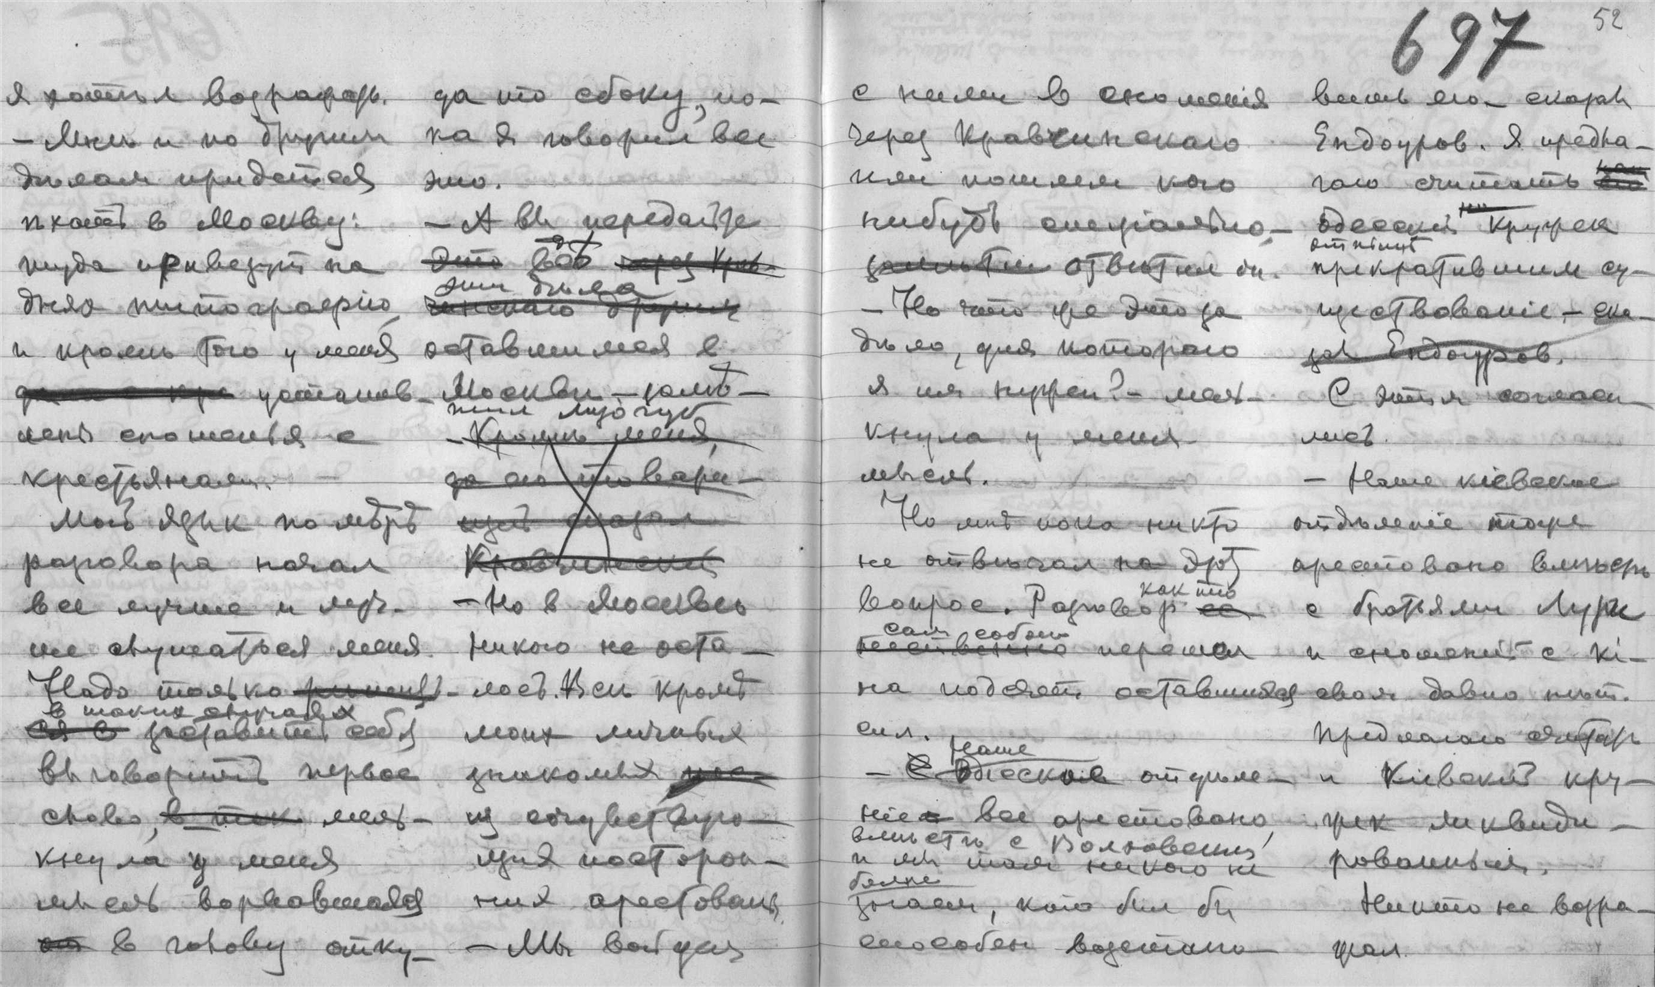 697
52
я хотѣл возражать.
– Мнѣ и по другим
дѣлам придется
ѣхать в Москву:
туда привезут на
днях типографію,
и кромѣ того у меня
установ-
лены сношенья с
крестьянами.
Мой язык по мѣрѣ
разговора начал
все лучше и луч-
ше слушаться меня.
Надо только
в таких случаях
заставить себя
выговорить первое
слово, в так мельк-
кнула у меня
мысль ворвавшаяся
в голову отку-
да то сбоку, по-
ка я говорил все
это.
– А вы передайте
Это все через Крав-
эти дѣла
чинскаго другим
оставшимся в
Москвѣ – замѣ-
тил Лизогуб
– Кромѣ меня,
товари-
щей сказал
Кравчинский
– Но в Москвѣ
никого не оста-
лось. Всѣ кромѣ
моих личных
знакомых
из сочувствую-
щих посторон-
них арестованы.
– Мы войдем
с ними в сношенія
через Кравчинскаго
или пошлем кого
нибудь спеціально, –
замѣтили отвѣтил он.
– Но что же это за
дѣло, для котораго
я им нужен? – мель-
кнула у меня
мысль.
Но мнѣ пока никто
не отвѣчал на этот
вопрос. Разговор как то
сам собою
перешел
на подсчет оставшихся
сил.
– Наше
Одесское отдѣле-
ніе все арестовано,
вмѣстѣ с Волховским
и мы там никого не
болѣе
знаем, кого был бы
способен возстано-
вить его – сказал
Ендоуров. Я предла-
гаю считать
одесский кружек
отнынѣ
прекратившим су-
ществованіе, – ска-
зал Ендоуров.
С этим согласи-
лись.
– Наше кіевское
отдѣленіе тоже
арестовано вмѣстѣ
с братьями Лурье
и сношеній с Кі-
евом давно нѣт.
Предлагаю считать
и Кіевский кру-
жек ликвиди-
рованным.
Никто не возра-
жал